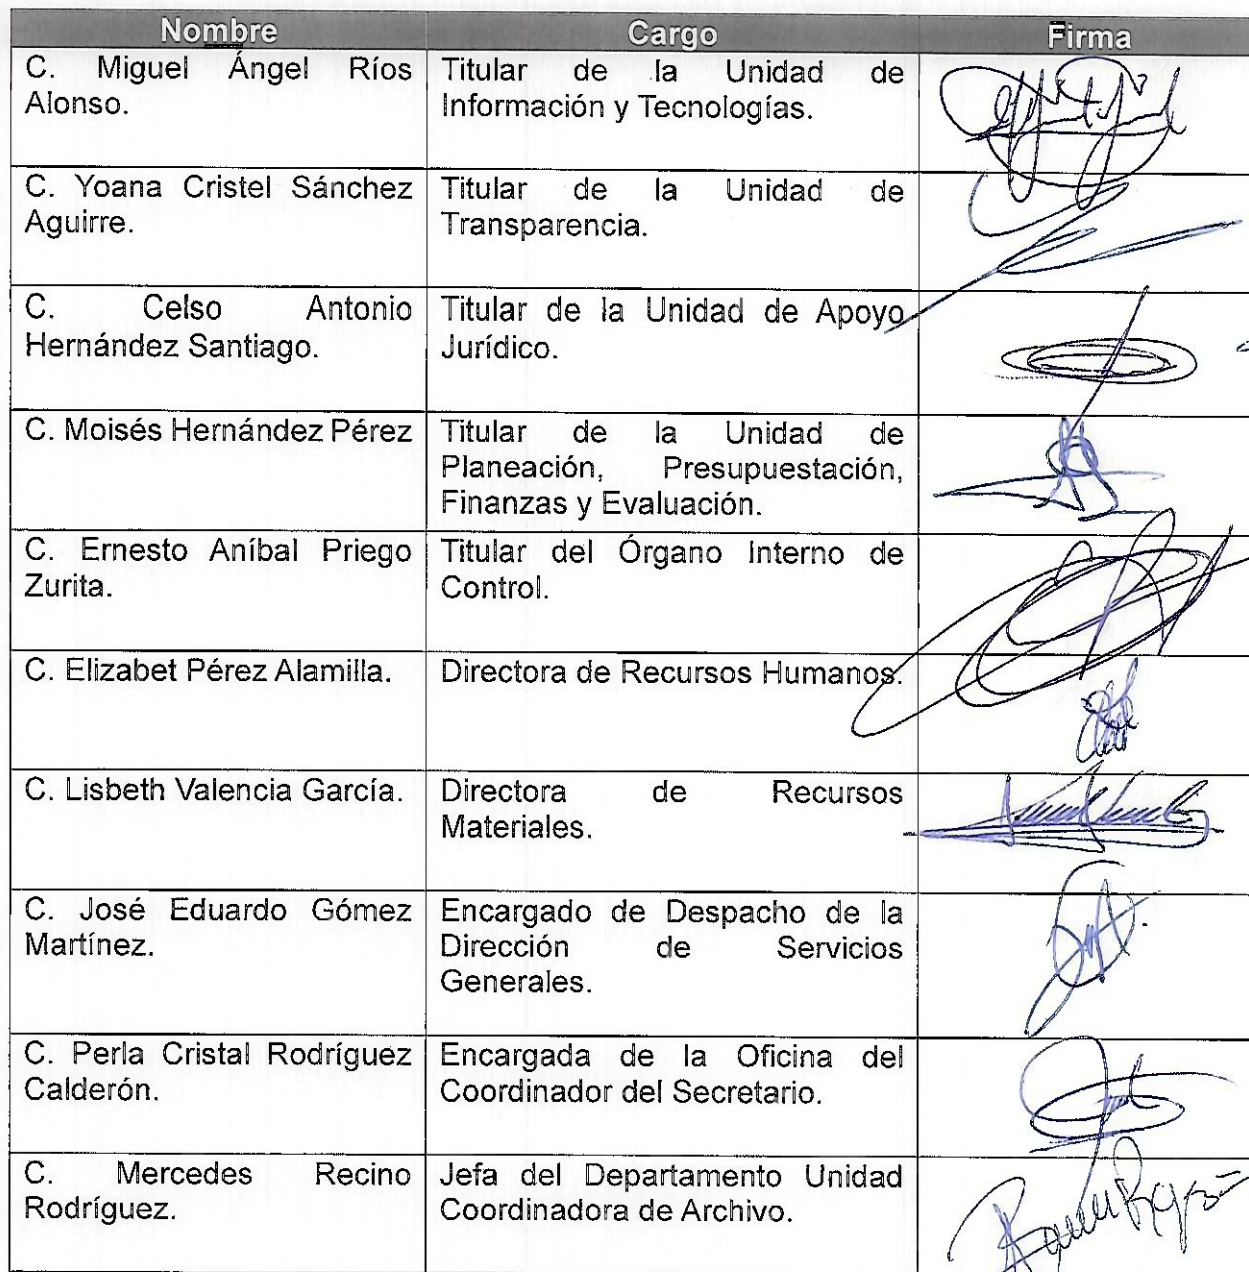 Nombre Cargo Firma
C. Miguel Ángel Ríos Titular de la Unidad de
Alonso. Información y Tecnologías.
C. Yoana Cristel Sánchez Titular de la Unidad de
Aguirre. Transparencia.
C. Celso Antonio Titular de la Unidad de Apoyo
Hernández Santiago. Jurídico.
C. Moisés Hernández Pérez Titular de la Unidad de
Planeación, Presupuestación,
Finanzas y Evaluación.
C. Ernesto Aníbal Priego Titular del Órgano Interno de
Zurita. Control.
C. Elizabet Pérez Alamilla. Directora de Recursos Humanos.
C. Lisbeth Valencia García. Directora de Recursos
Materiales.
C. José Eduardo Gómez Encargado de Despacho de la
Martínez. Dirección de Servicios
Generales.
C. Perla Cristal Rodríguez Encargada de la Oficina del
Calderón. Coordinador del Secretario.
C. Mercedes Recino Jefa del Departamento Unidad
Rodríguez. Coordinadora de Archivo.